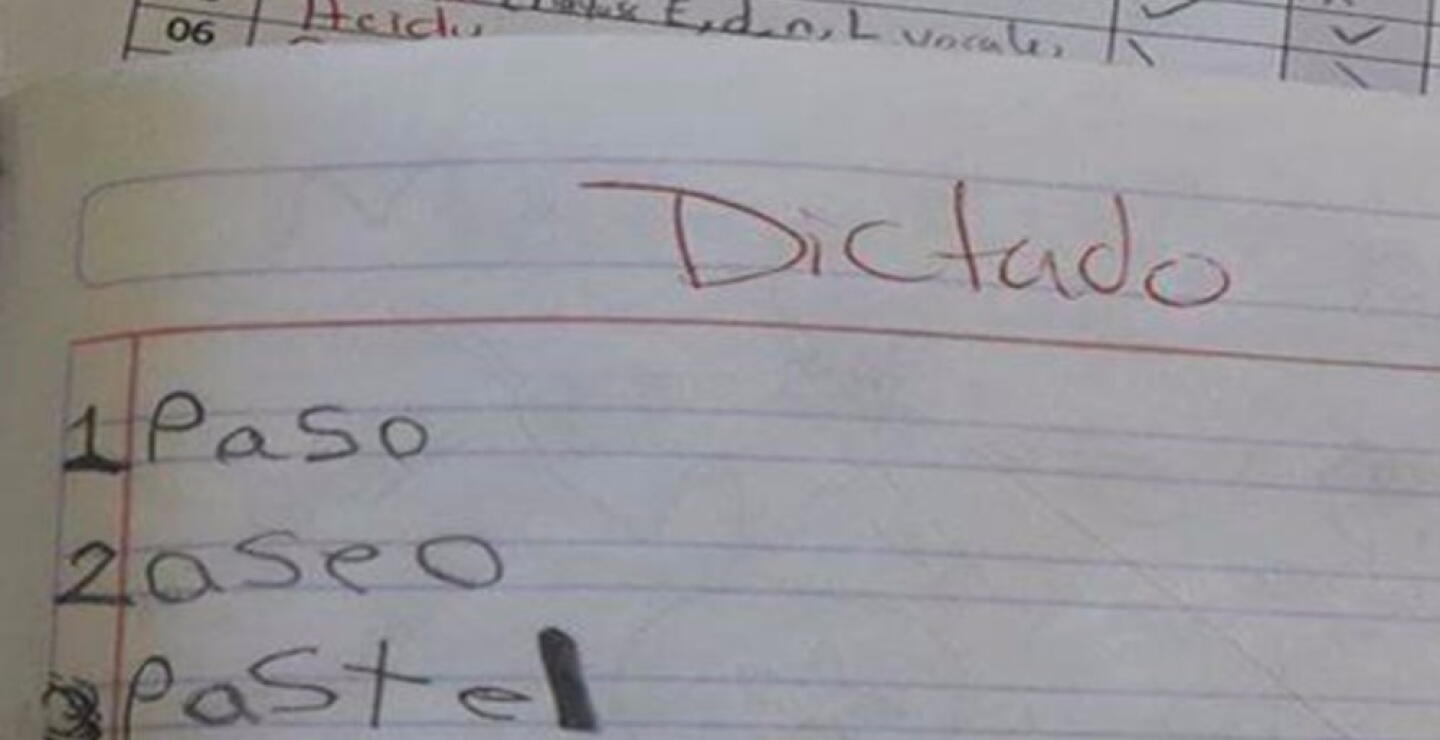 06 E,d,n,L vocales
Dictado
1 Paso
2 aseo
3 Pastel